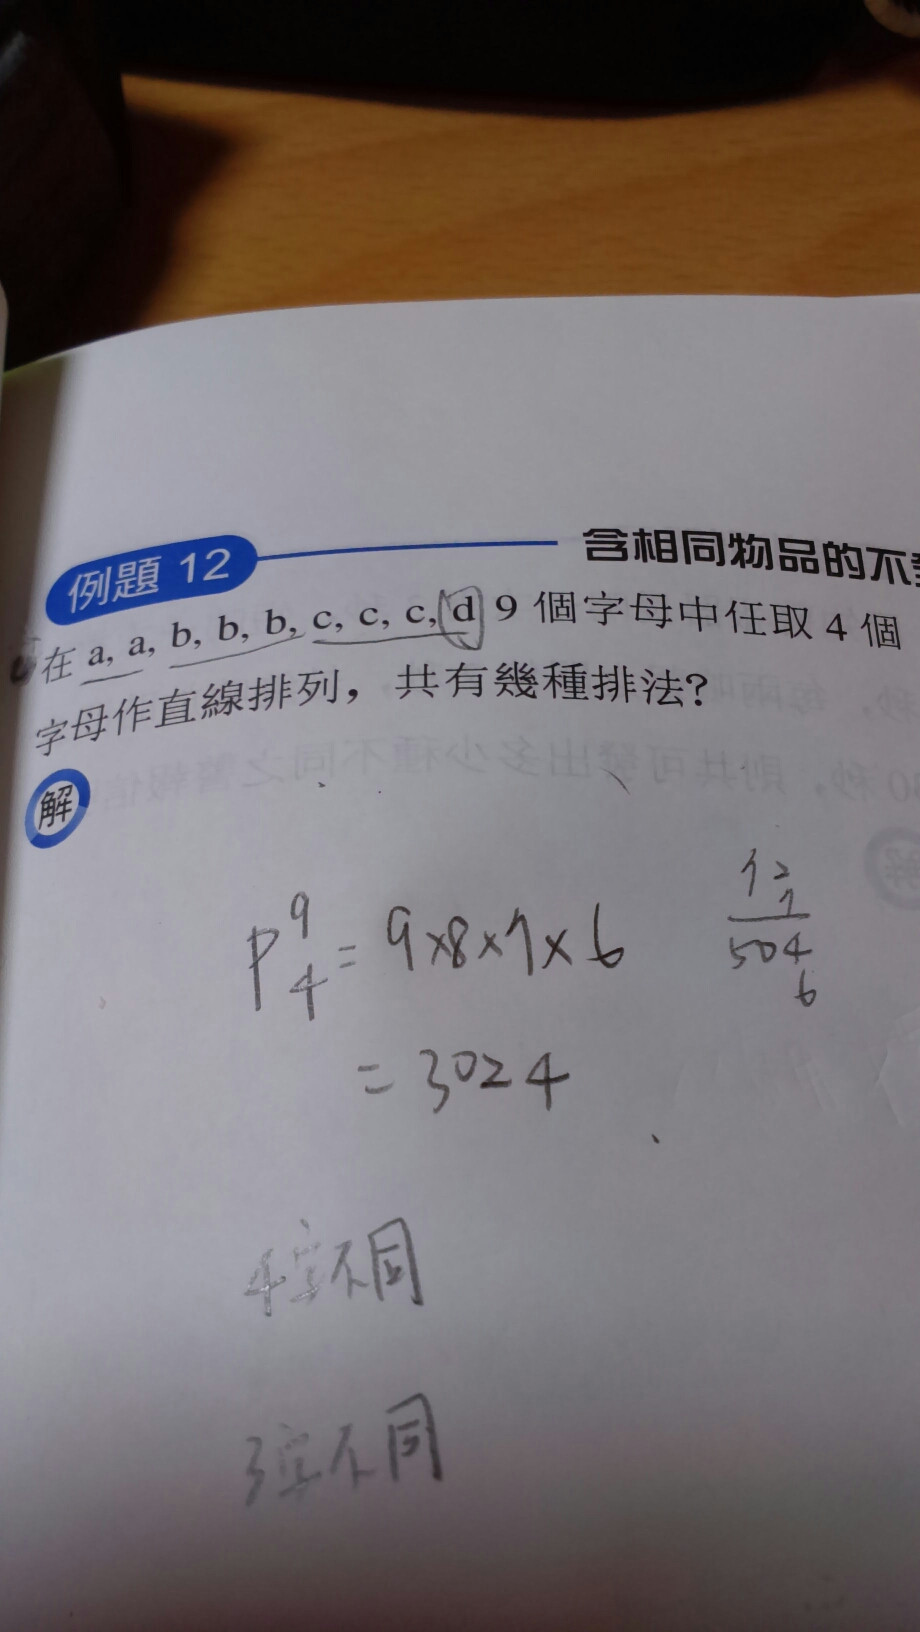 例題 12
含相同物品的不
在 a, a, b, b, b, c, c, c, d 9 個字母中任取 4 個
字母作直線排列，共有幾種排法?
解
P⁹₄ = 9×8×7×6
= 3024
72
7
504
6
4字不同
3字不同